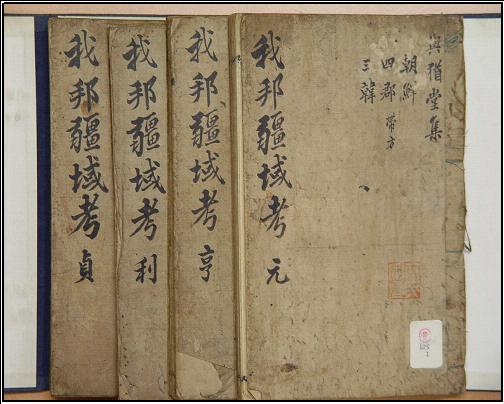 與猶堂集
朝鮮
四郡 帶方
三韓
我邦疆域考 元
我邦疆域考 亨
我邦疆域考 利
我邦疆域考 貞